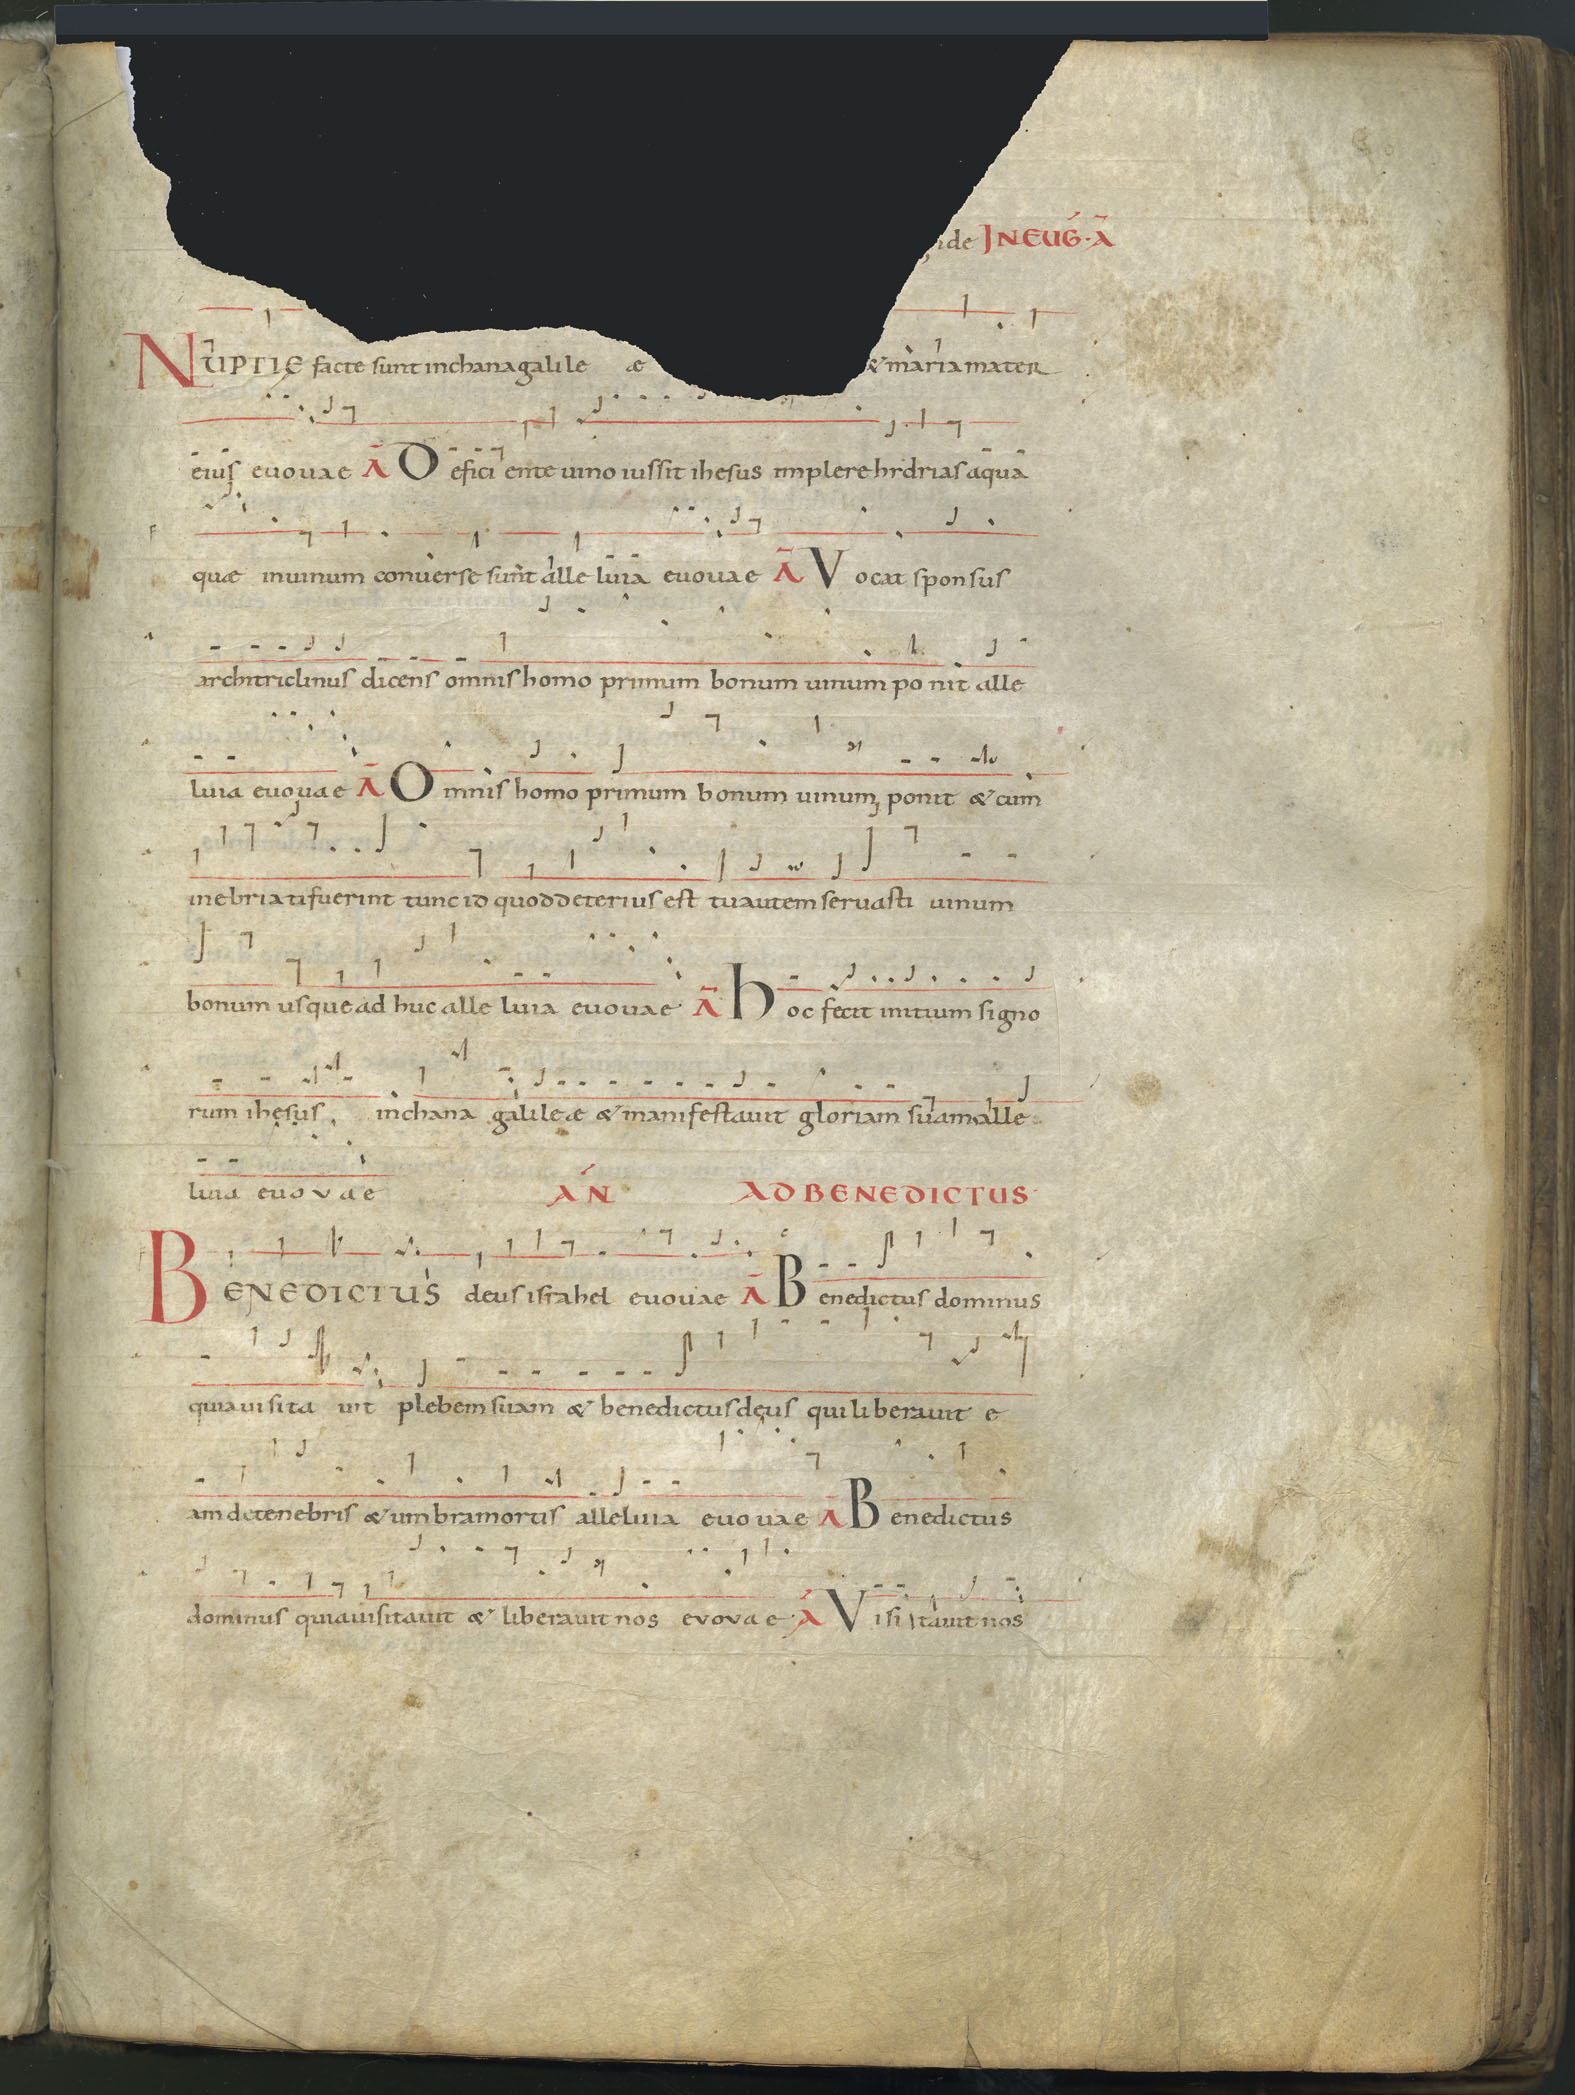 ide IN EUG. A
NUPTIE facte sunt inchana galile æ & maria mater
eius evovae A Deficiente vino iussit ihesus implere hidrias aqua
quæ invinum converse sunt alle luia evovae A Vocat sponsus
architriclinus dicens omnis homo primum bonum vinum ponit alle
luia evovae A Omnis homo primum bonum vinum ponit & cum
inebriati fuerint tunc id quod deterius est tu autem servasti vinum
bonum usque ad huc alle luia evovae A Hoc fecit initium signo
rum ihesus inchana galileæ & manifestavit gloriam suam alle
luia evovae AN AD BENEDICTUS
BENEDICTUS deus israhel evovae A Benedictus dominus
quia visita vit plebem suam & benedictus deus qui liberavit e
am de tenebris & umbra mortis alleluia evovae A Benedictus
dominus quia visitavit & liberavit nos evovae A Visitavit nos